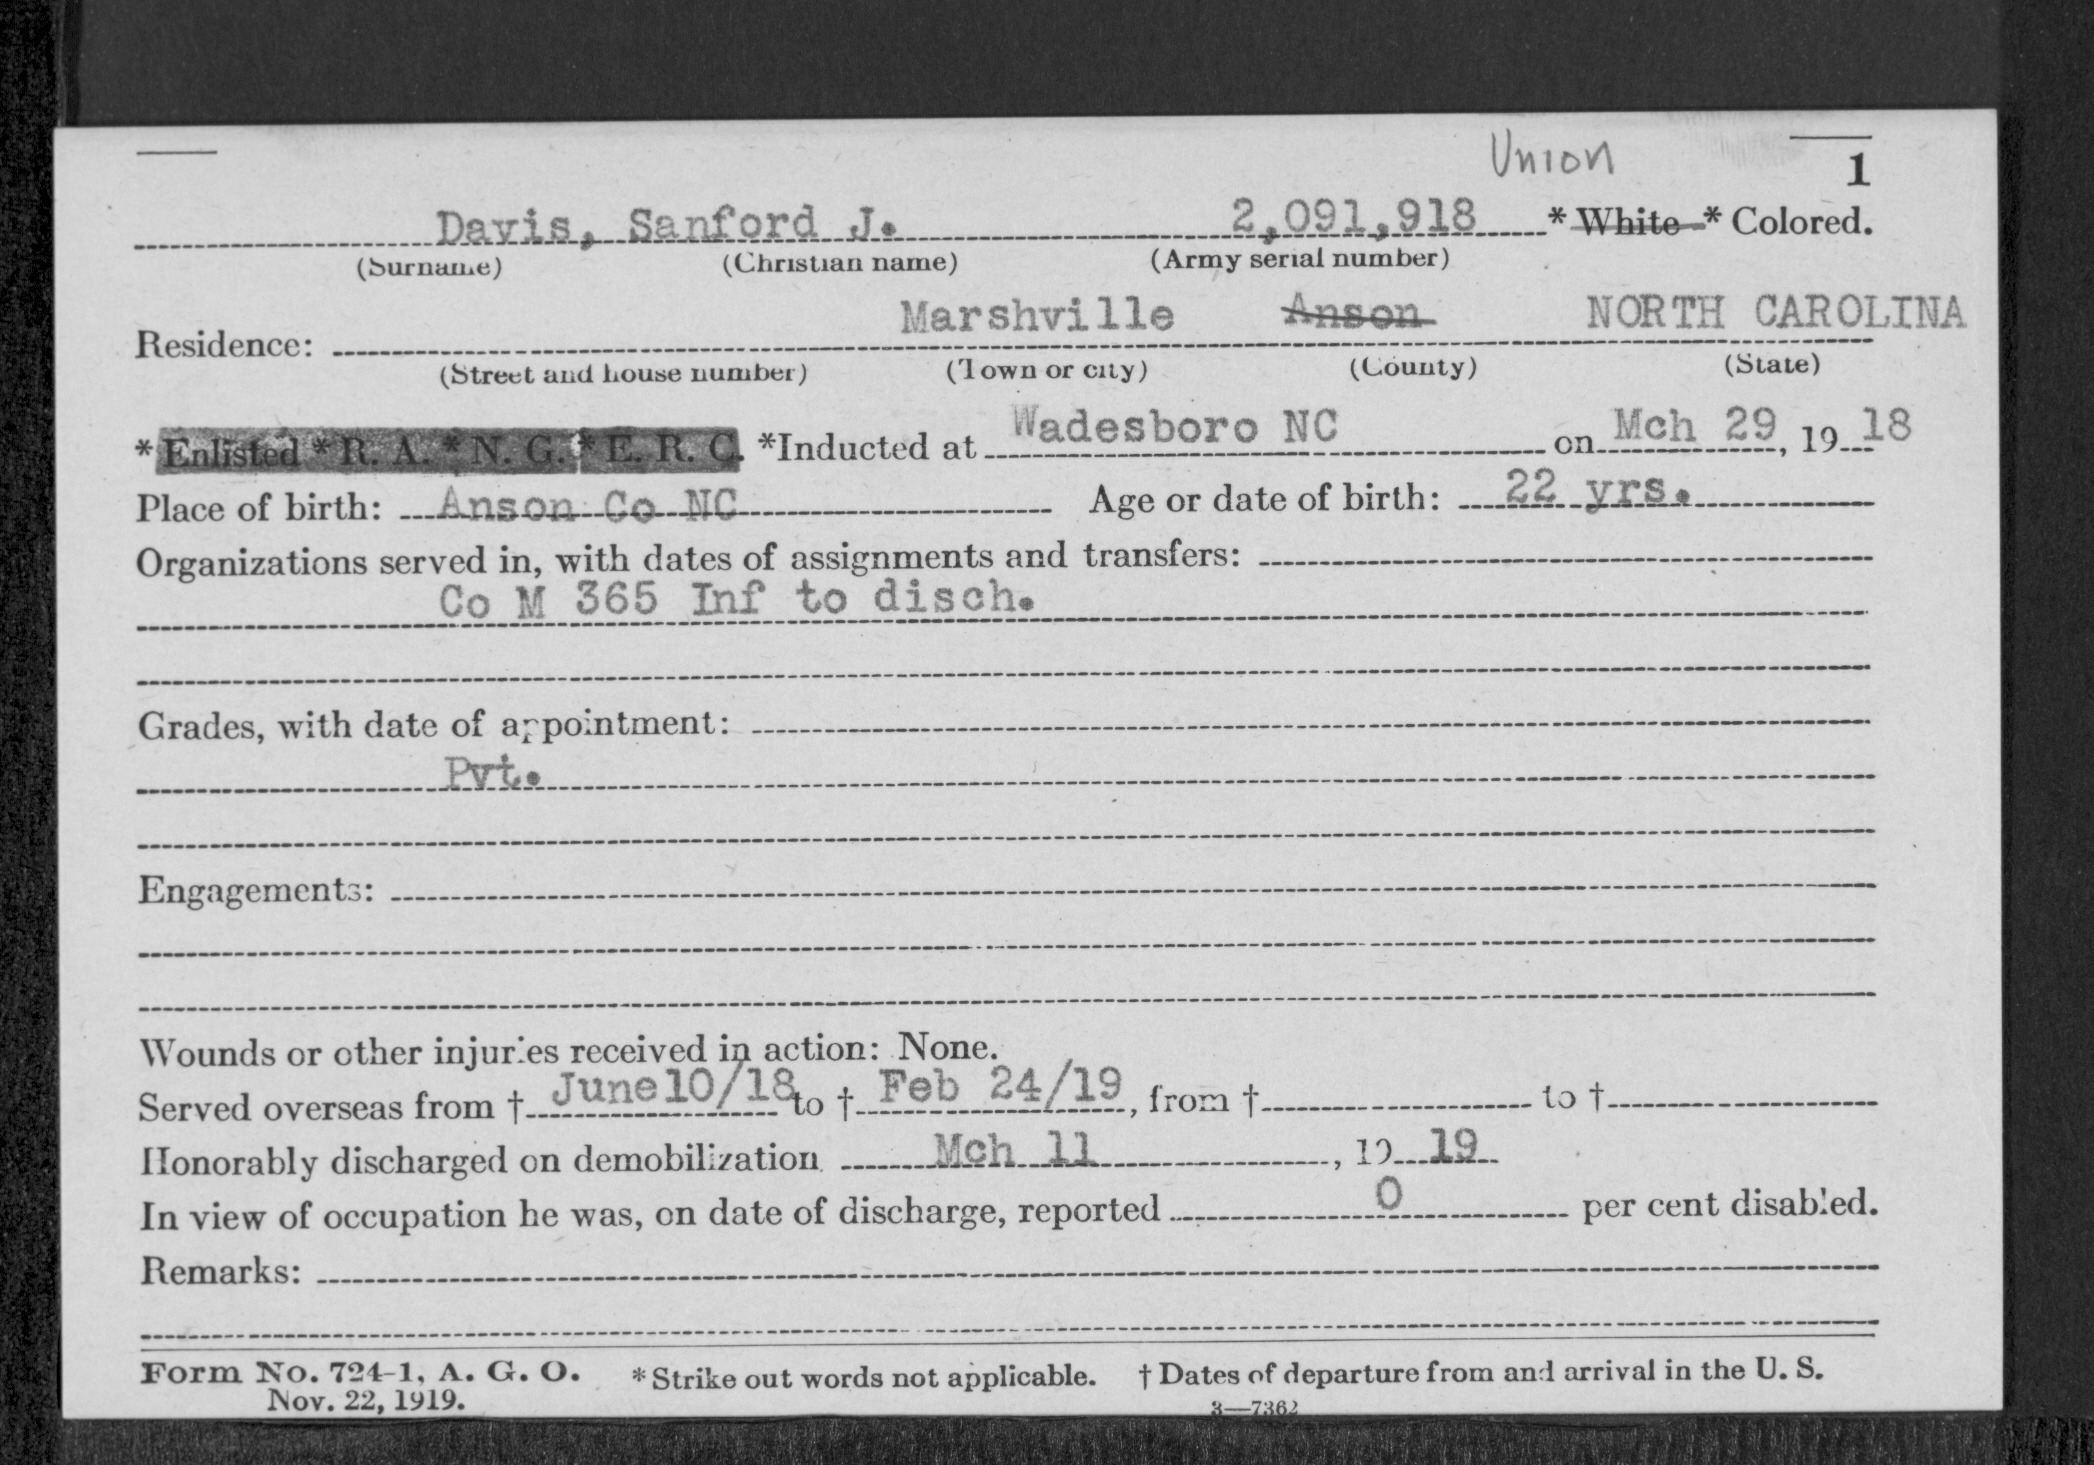 Union
1
Davis, Sanford J. 2,091,918 * White * Colored.
(Surname) (Christian name) (Army serial number)
Marshville Anson NORTH CAROLINA
Residence:
(Street and house number) (Town or city) (County) (State)
* Enlisted * R. A. * N. G. * E. R. C. *Inducted at Wadesboro NC on Mch 29, 19 18
Place of birth: Anson Co NC Age or date of birth: 22 yrs.
Organizations served in, with dates of assignments and transfers:
Co M 365 Inf to disch.
Grades, with date of appointment:
Pvt.
Engagements:
Wounds or other injuries received in action: None.
Served overseas from † June10/18 to † Feb 24/19, from † to †
Honorably discharged on demobilization Mch 11, 19 19
In view of occupation he was, on date of discharge, reported 0 per cent disabled.
Remarks:
Form No. 724-1, A. G. O. * Strike out words not applicable. † Dates of departure from and arrival in the U. S.
Nov. 22, 1919. 3—7362